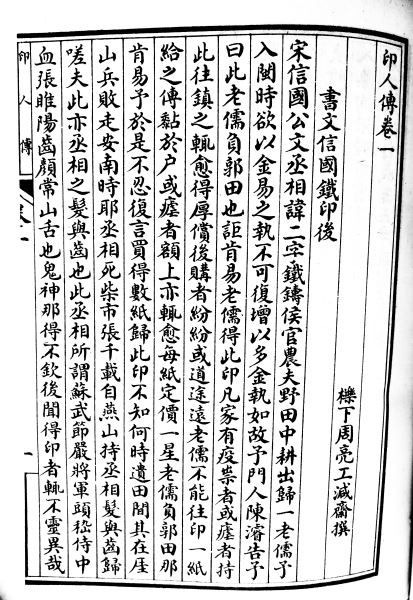 印人傳卷一
櫟下周亮工減齋撰
書文信國鐵印後
宋信國公文丞相諱二字鐵鑄侯官農夫野田中耕出歸一老儒予
入閩時欲以金易之執不可復增以多金執如故予門人陳濬告予
曰此老儒負郭田也詎肯易老儒得此印凡家有疫祟者或瘧者持
此往鎮之輒愈得厚償後購者紛紛或道途遠老儒不能往印一紙
給之傳黏於户或瘧者額上亦輒愈每紙定價一星老儒負郭田那
肯易予於是不忍復言買得數紙歸此印不知何時遺田間其在厓
山兵敗走安南時耶丞相死柴市張千載自燕山持丞相髮與齒歸
嗟夫此亦丞相之髮與齒也此丞相所謂蘇武節嚴將軍頭嵇侍中
血張睢陽齒顏常山舌也鬼神那得不欽後聞得印者輒不靈異哉
印人傳
卷一
一